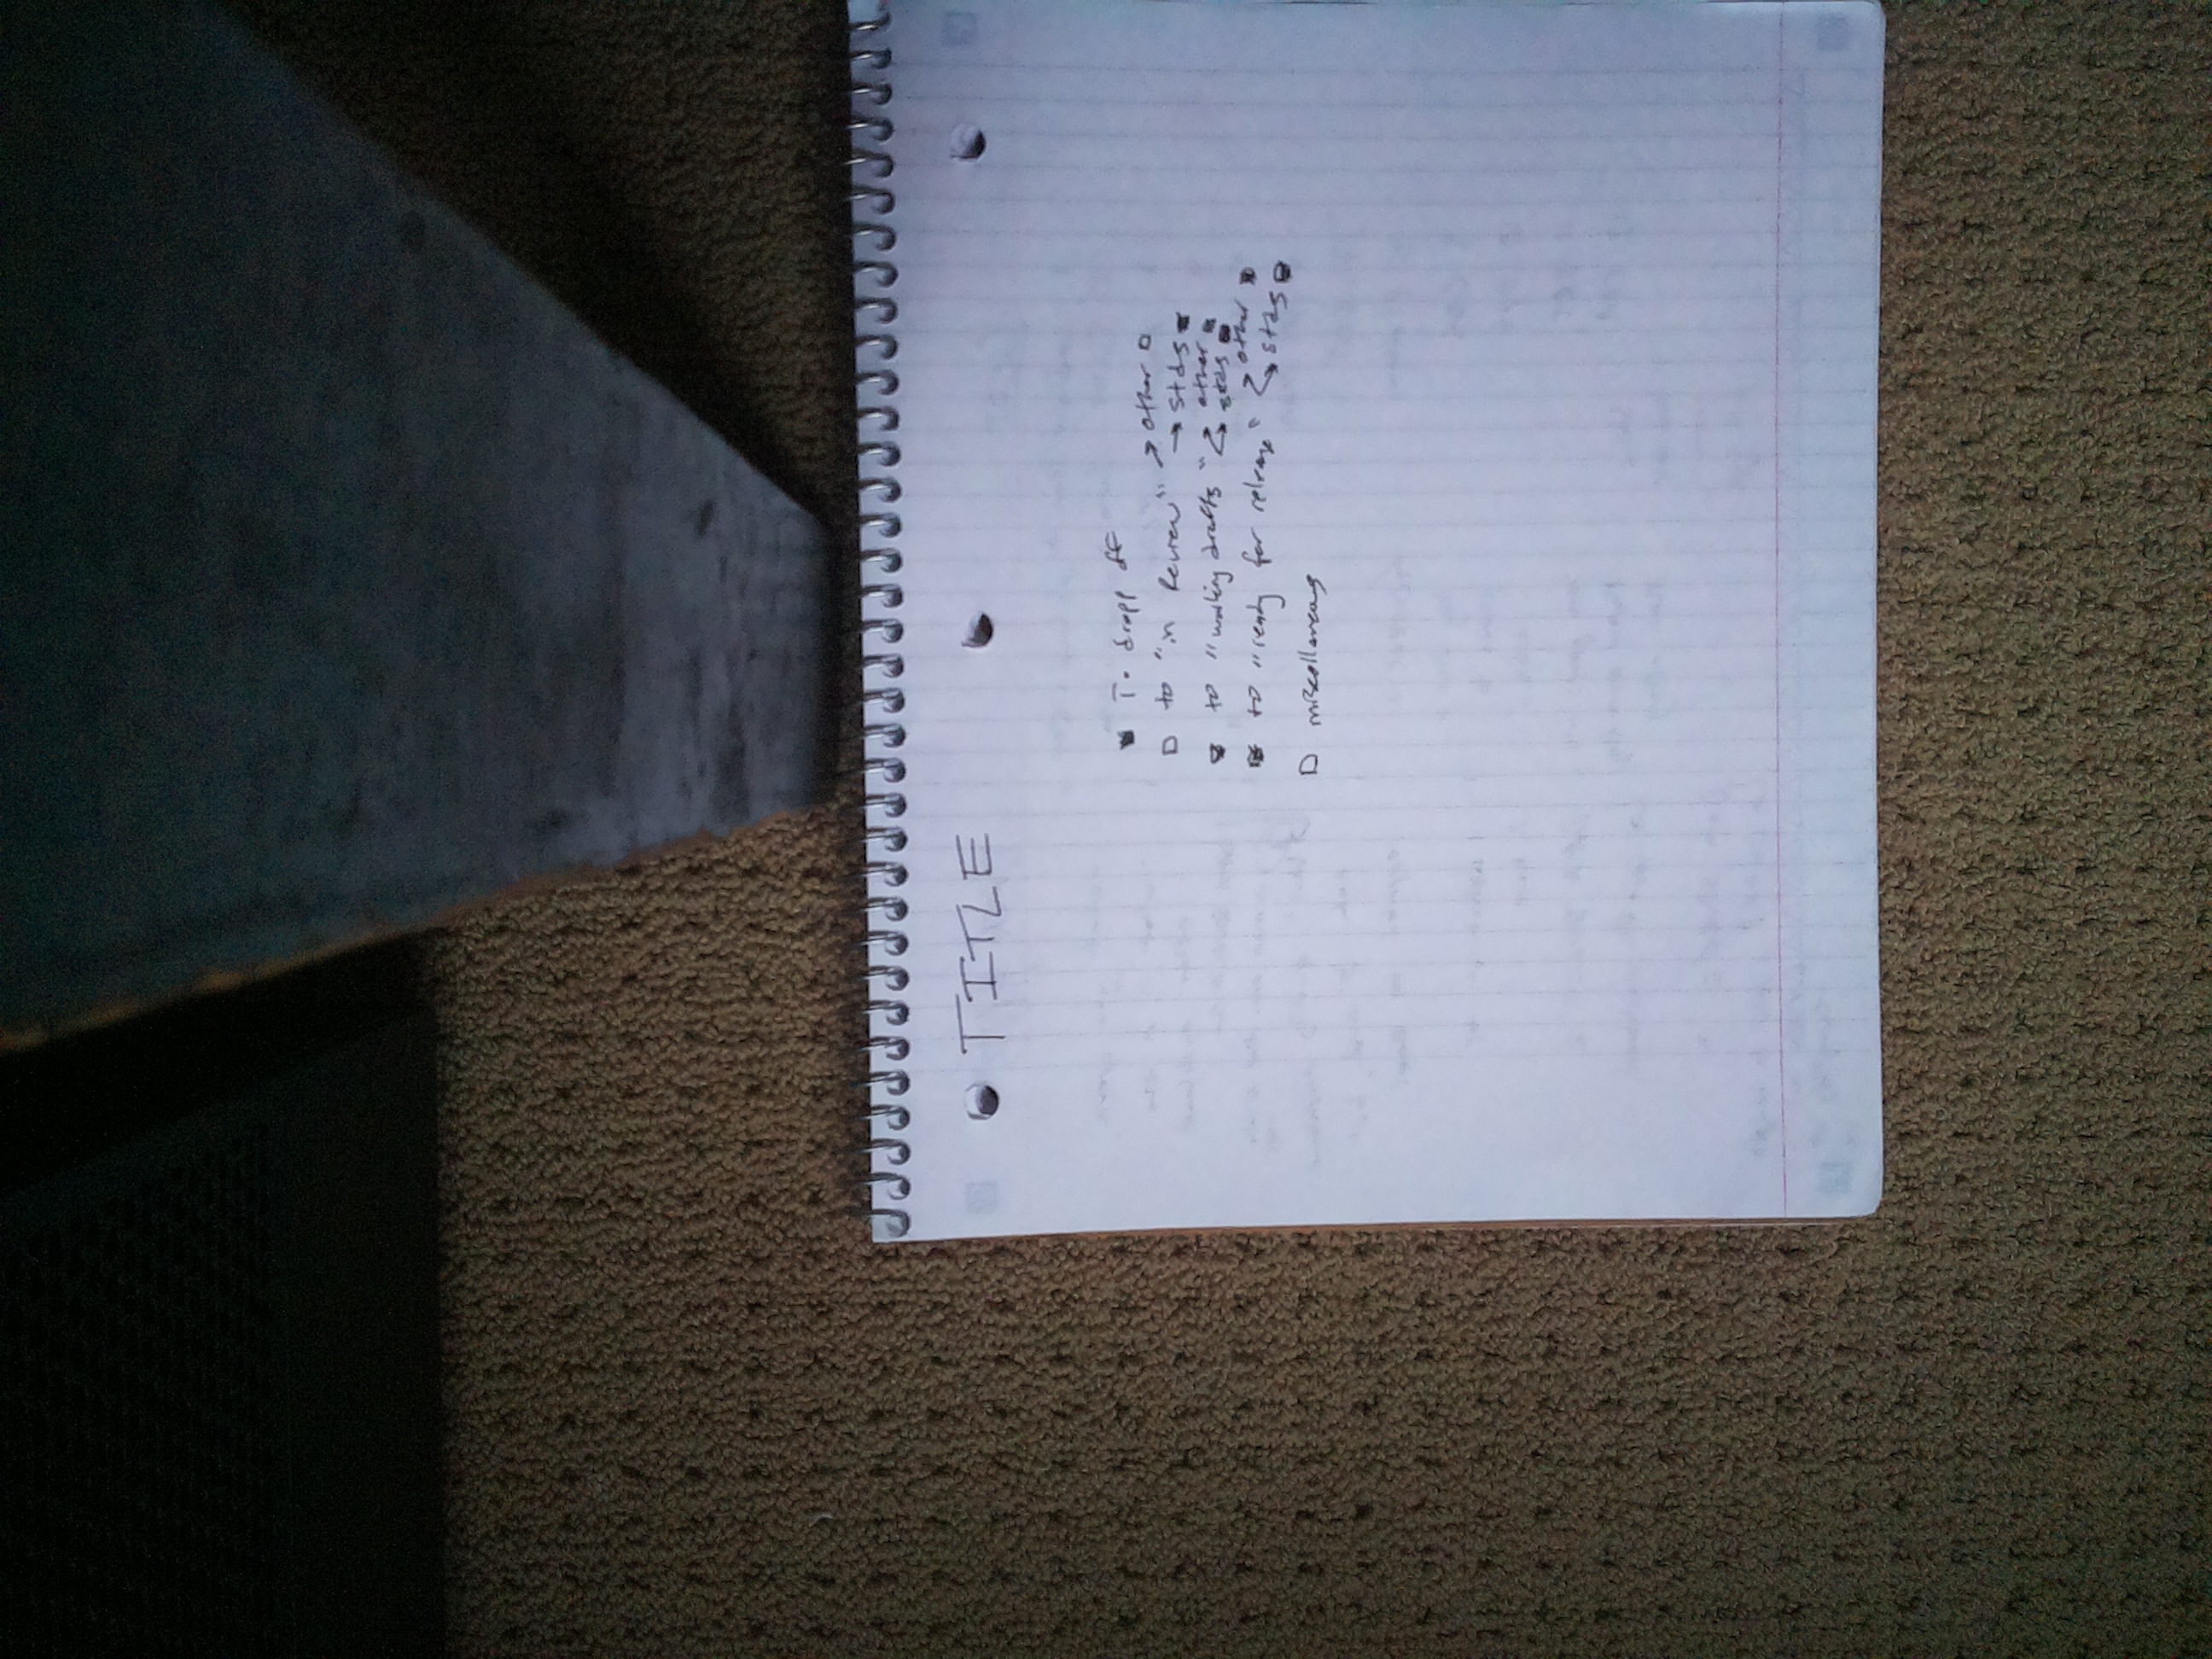 TITLE
■ To dropp off
□ to "in Review" → other □
→ stds ■
■ to "working drafts" → other ■
→ stds ■
■ to "ready for release" → other ■
→ stds ■
□ miscellaneous